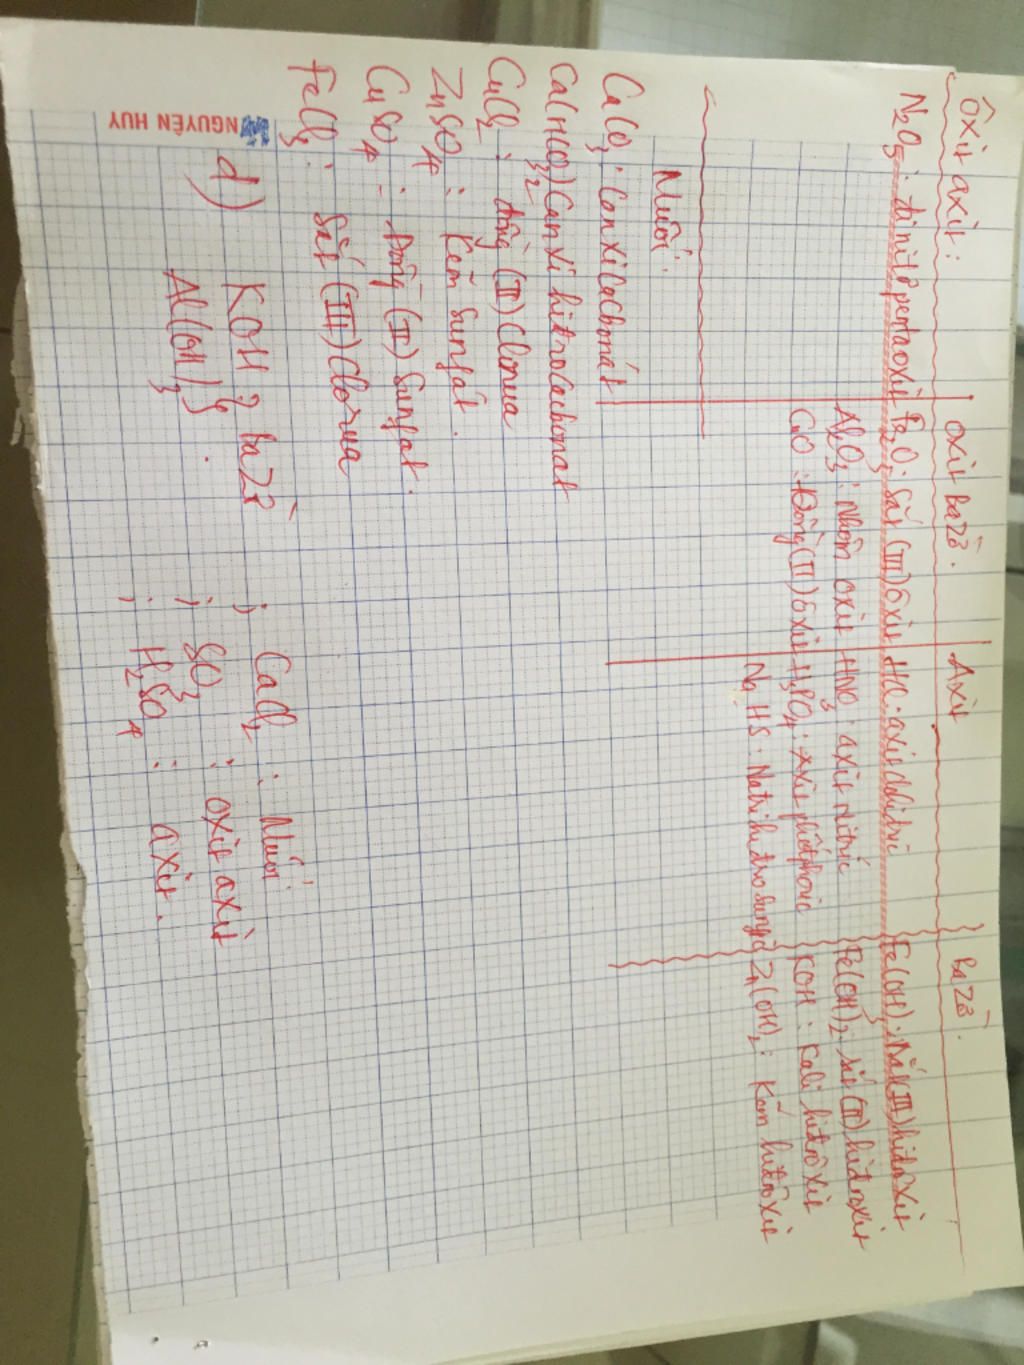 Ôxit axit: oxit Bazơ. Axit Bazơ.
N2O5: đinitơ pentaoxit Fe2O3: Sắt (III) oxit HCl: axit clohiđric Fe(OH)3: Sắt (III) hiđroxit
Al2O3: Nhôm oxit HNO3: axit nitric Fe(OH)2: sắt (II) hiđroxit
CuO: Đồng (II) oxit H3PO4: axit photphoric KOH: Kali hiđroxit
Na HS: Natri hiđrosunfua Zn(OH)2: Kẽm hiđroxit
Muối:
CaCO3: Canxi Cacbonat
Ca(HCO3)2 Canxi hiđrocacbonat
CuCl2: đồng (II) Clorua
ZnSO4: Kẽm Sunfat.
CuSO4: Đồng (II) Sunfat.
FeCl3: Sắt (III) Clorua
NGUYÊN HUY
d) KOH } bazơ ; CaCl2: Muối
Al(OH)3 } ; SO3: oxit axit
; H2SO4: axit.